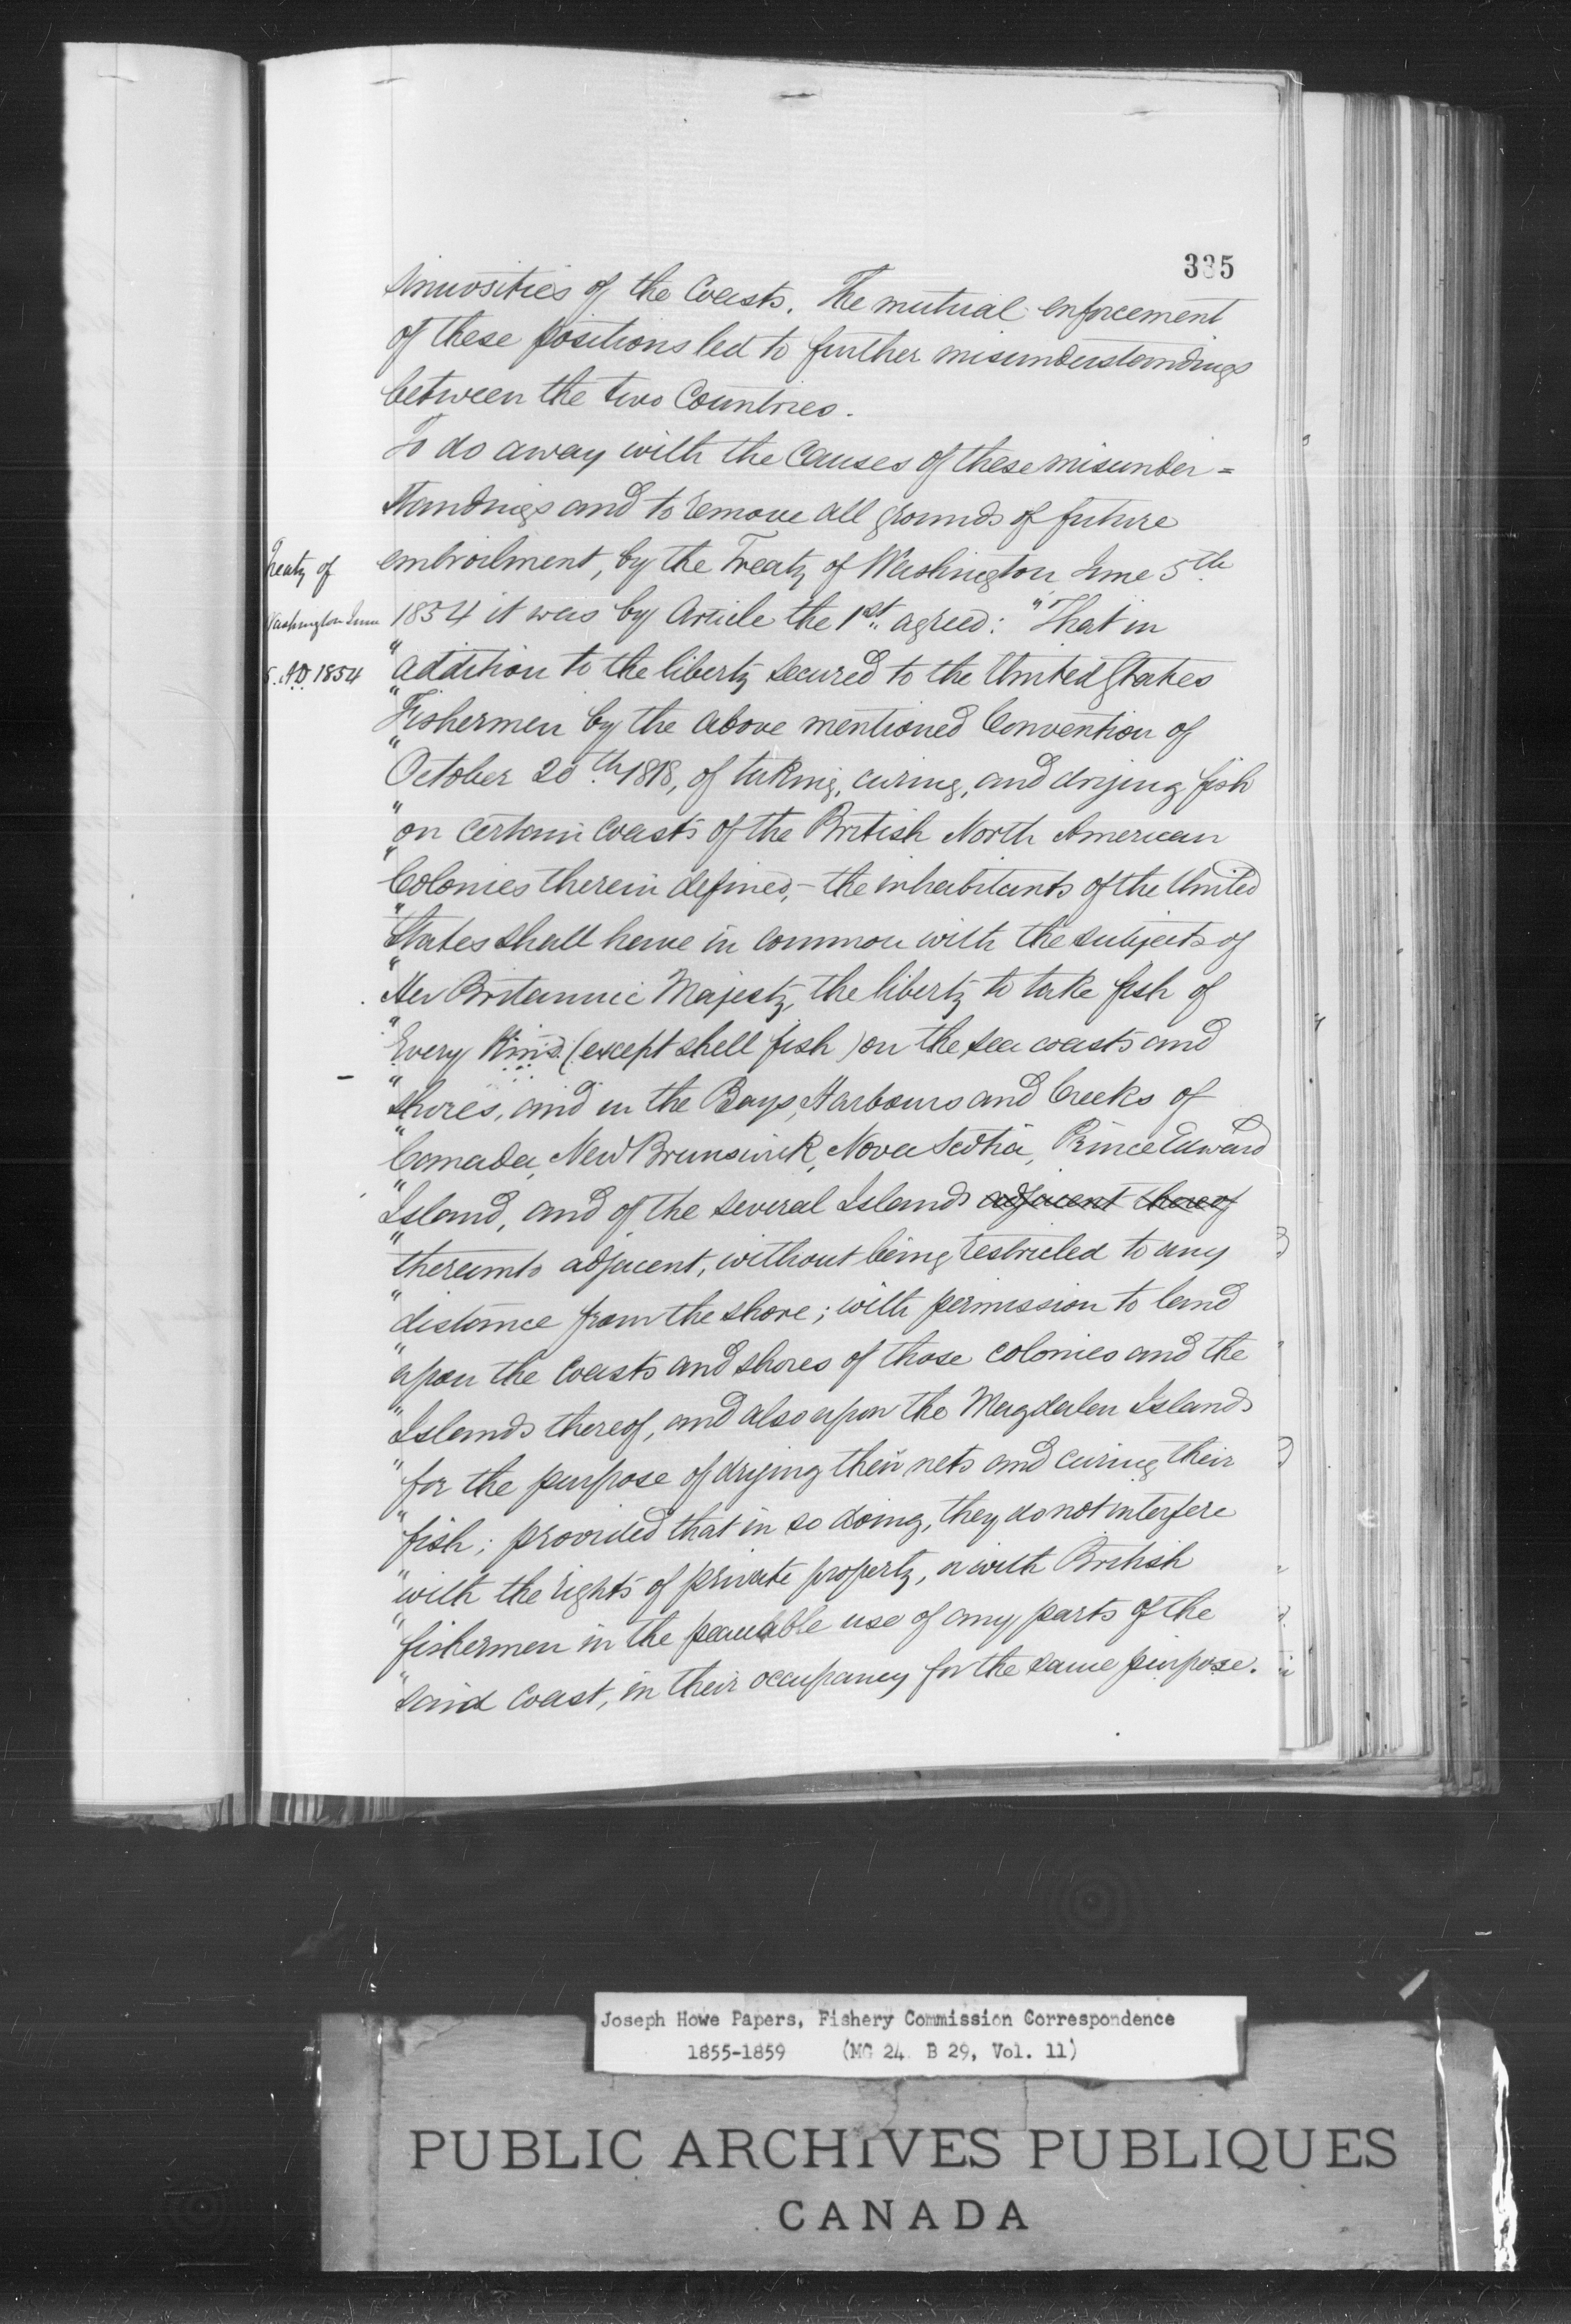 335
sinuosities of the Coasts. The mutual enforcement
of these positions led to further misunderstandings
between the two Countries.
To do away with the Causes of these misunder=
standings and to remove all grounds of future
embroilment, by the Treaty of Washington June 5th
1854 it was by Article the 1st agreed: "That in
"addition to the liberty secured to the United States
"Fishermen by the above mentioned Convention of
"October 20th 1818, of taking, curing, and drying fish
"on certain coasts of the British North American
"Colonies therein defined, - the inhabitants of the United
"States shall have in common with the subjects of
"Her Britannic Majesty, the liberty to take fish of
"Every Kind (except shell fish) on the sea coasts and
"shores, and in the Bays, Harbours and Creeks of
"Canada, New Brunswick, Nova Scotia, Prince Edward
"Island, and of the several Islands adjacent thereof
"thereunto adjacent, without being restricted to any
"distance from the shore; with permission to land
"upon the Coasts and shores of those colonies and the
"Islands thereof, and also upon the Magdalen Islands
"for the purpose of drying their nets and curing their
"fish; provided that in so doing, they do not interfere
"with the rights of private property, or with British
"fishermen in the peaceable use of any parts of the
"said Coast, in their occupancy for the same purpose.
Treaty of
Washington June
5. A.D. 1854
Joseph Howe Papers, Fishery Commission Correspondence
1855-1859 (MG 24 B 29, Vol. 11)
PUBLIC ARCHIVES PUBLIQUES
CANADA